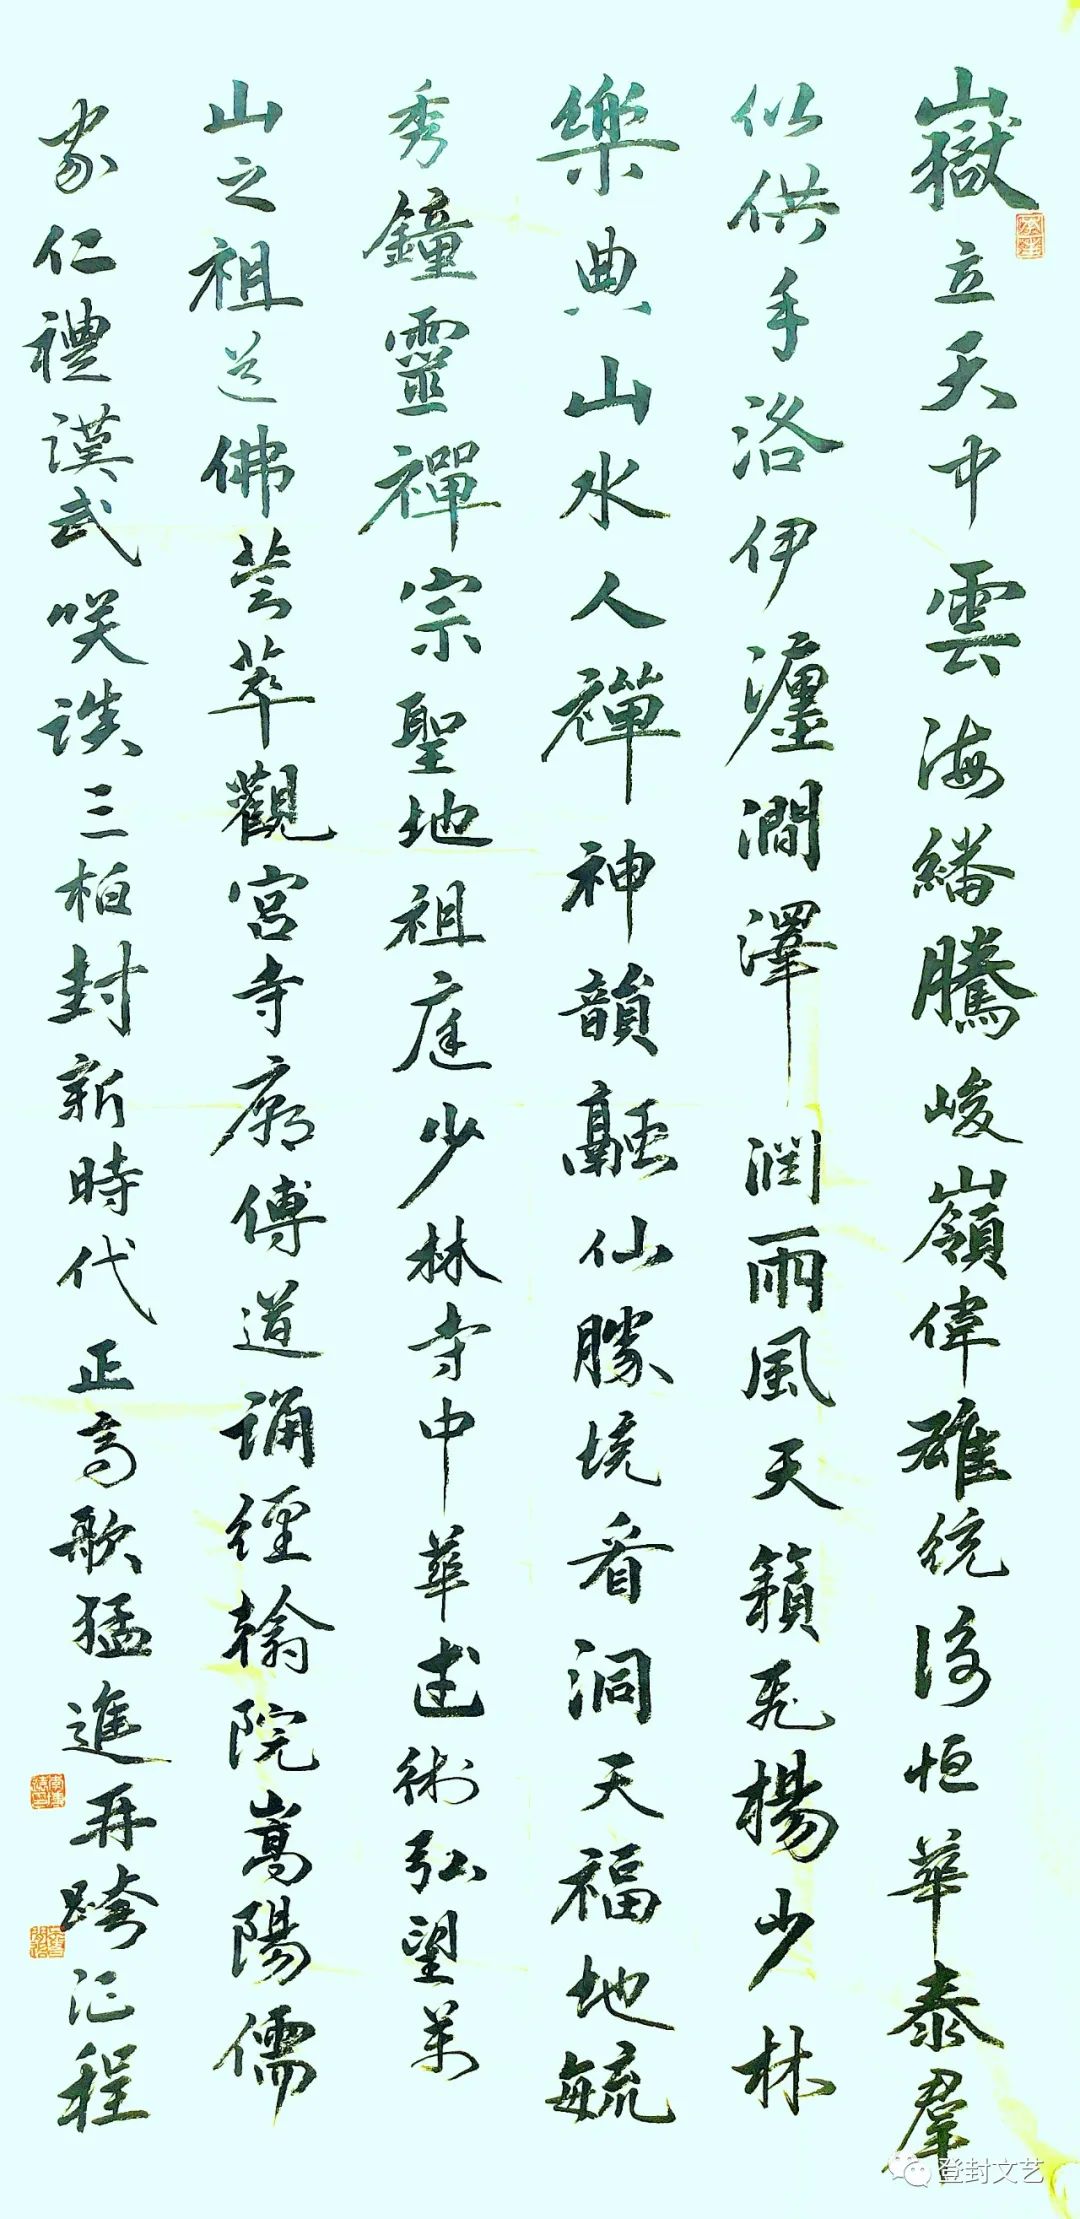 嶽立天中雲海繙騰峻嶺偉雄統衡恒華泰羣
似供手洛伊瀍澗澤潤雨風天籟飛楊少林
樂典山水人禪神韻融仙勝境看洞天福地毓
秀鐘靈禪宗聖地祖庭少林寺中華武術弘望萬
山之祖道佛薈萃觀宮寺廟傳道誦經翰院嵩陽儒
家仁禮漢武咲誤三柏封新時代正高歌猛進再跨征程
登封文艺